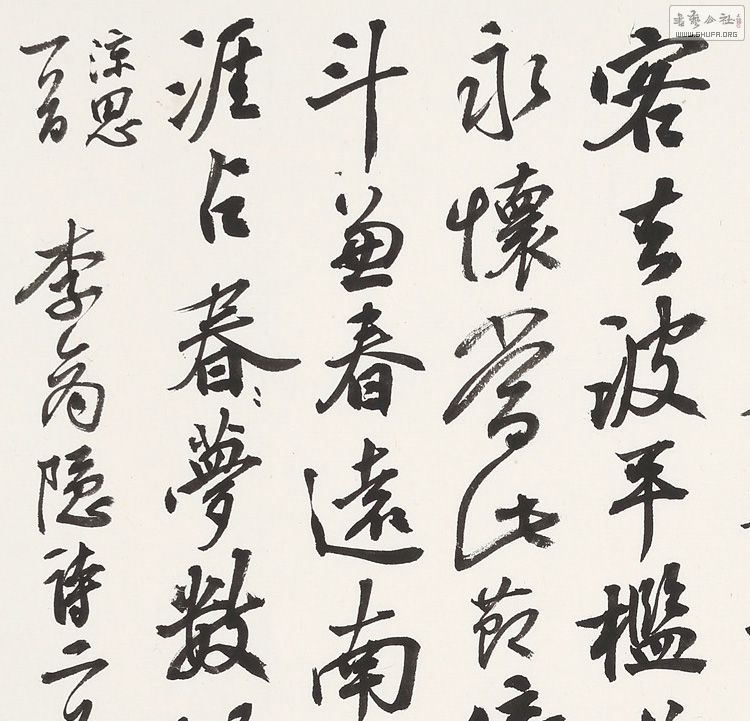 書藝公社
WWW.SHUFA.ORG
客去波平檻
永懷當此節倚
斗兼春遠南
涯占春夢數
涼思
一首
李商隱詩二